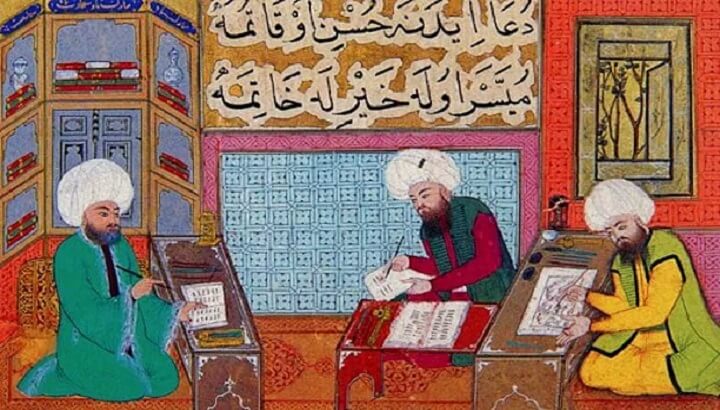 دُعَا اِیدَنَه حُسْنِ اوقَاتِمَهْ
مُیَسَّر اولَه خَیْرِلَه خَاتِمَهْ